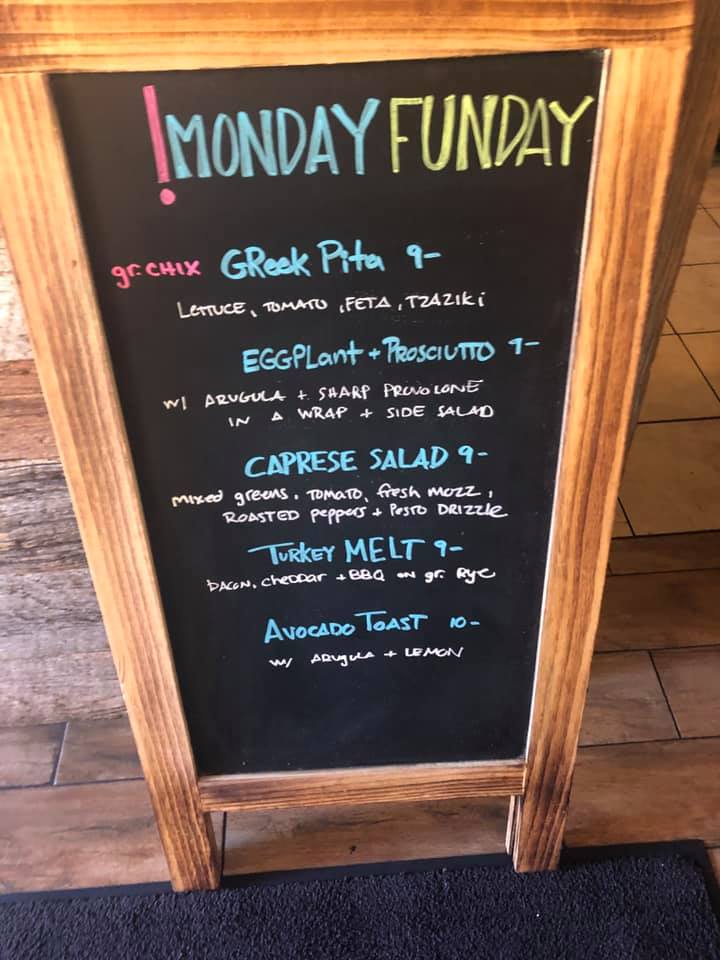 !MONDAY FUNDAY
gr. CHIX GReek Pita 9-
LETTUCE, TOMATO, FETA, TZAZIKi
EGGPLant + PROSCIUTTO 9-
w/ ARUGULA + SHARP PROVOLONE
IN A WRAP + SIDE SALAD
CAPRESE SALAD 9-
mixed greens, TOMATO, fresh mozz,
ROASTED peppers + Pesto DRIZZle
TURKEY MELT 9-
BACON, cheDDar + BBQ on gr. Rye
AVOCADO TOAST 10-
w/ ARugula + LEMON